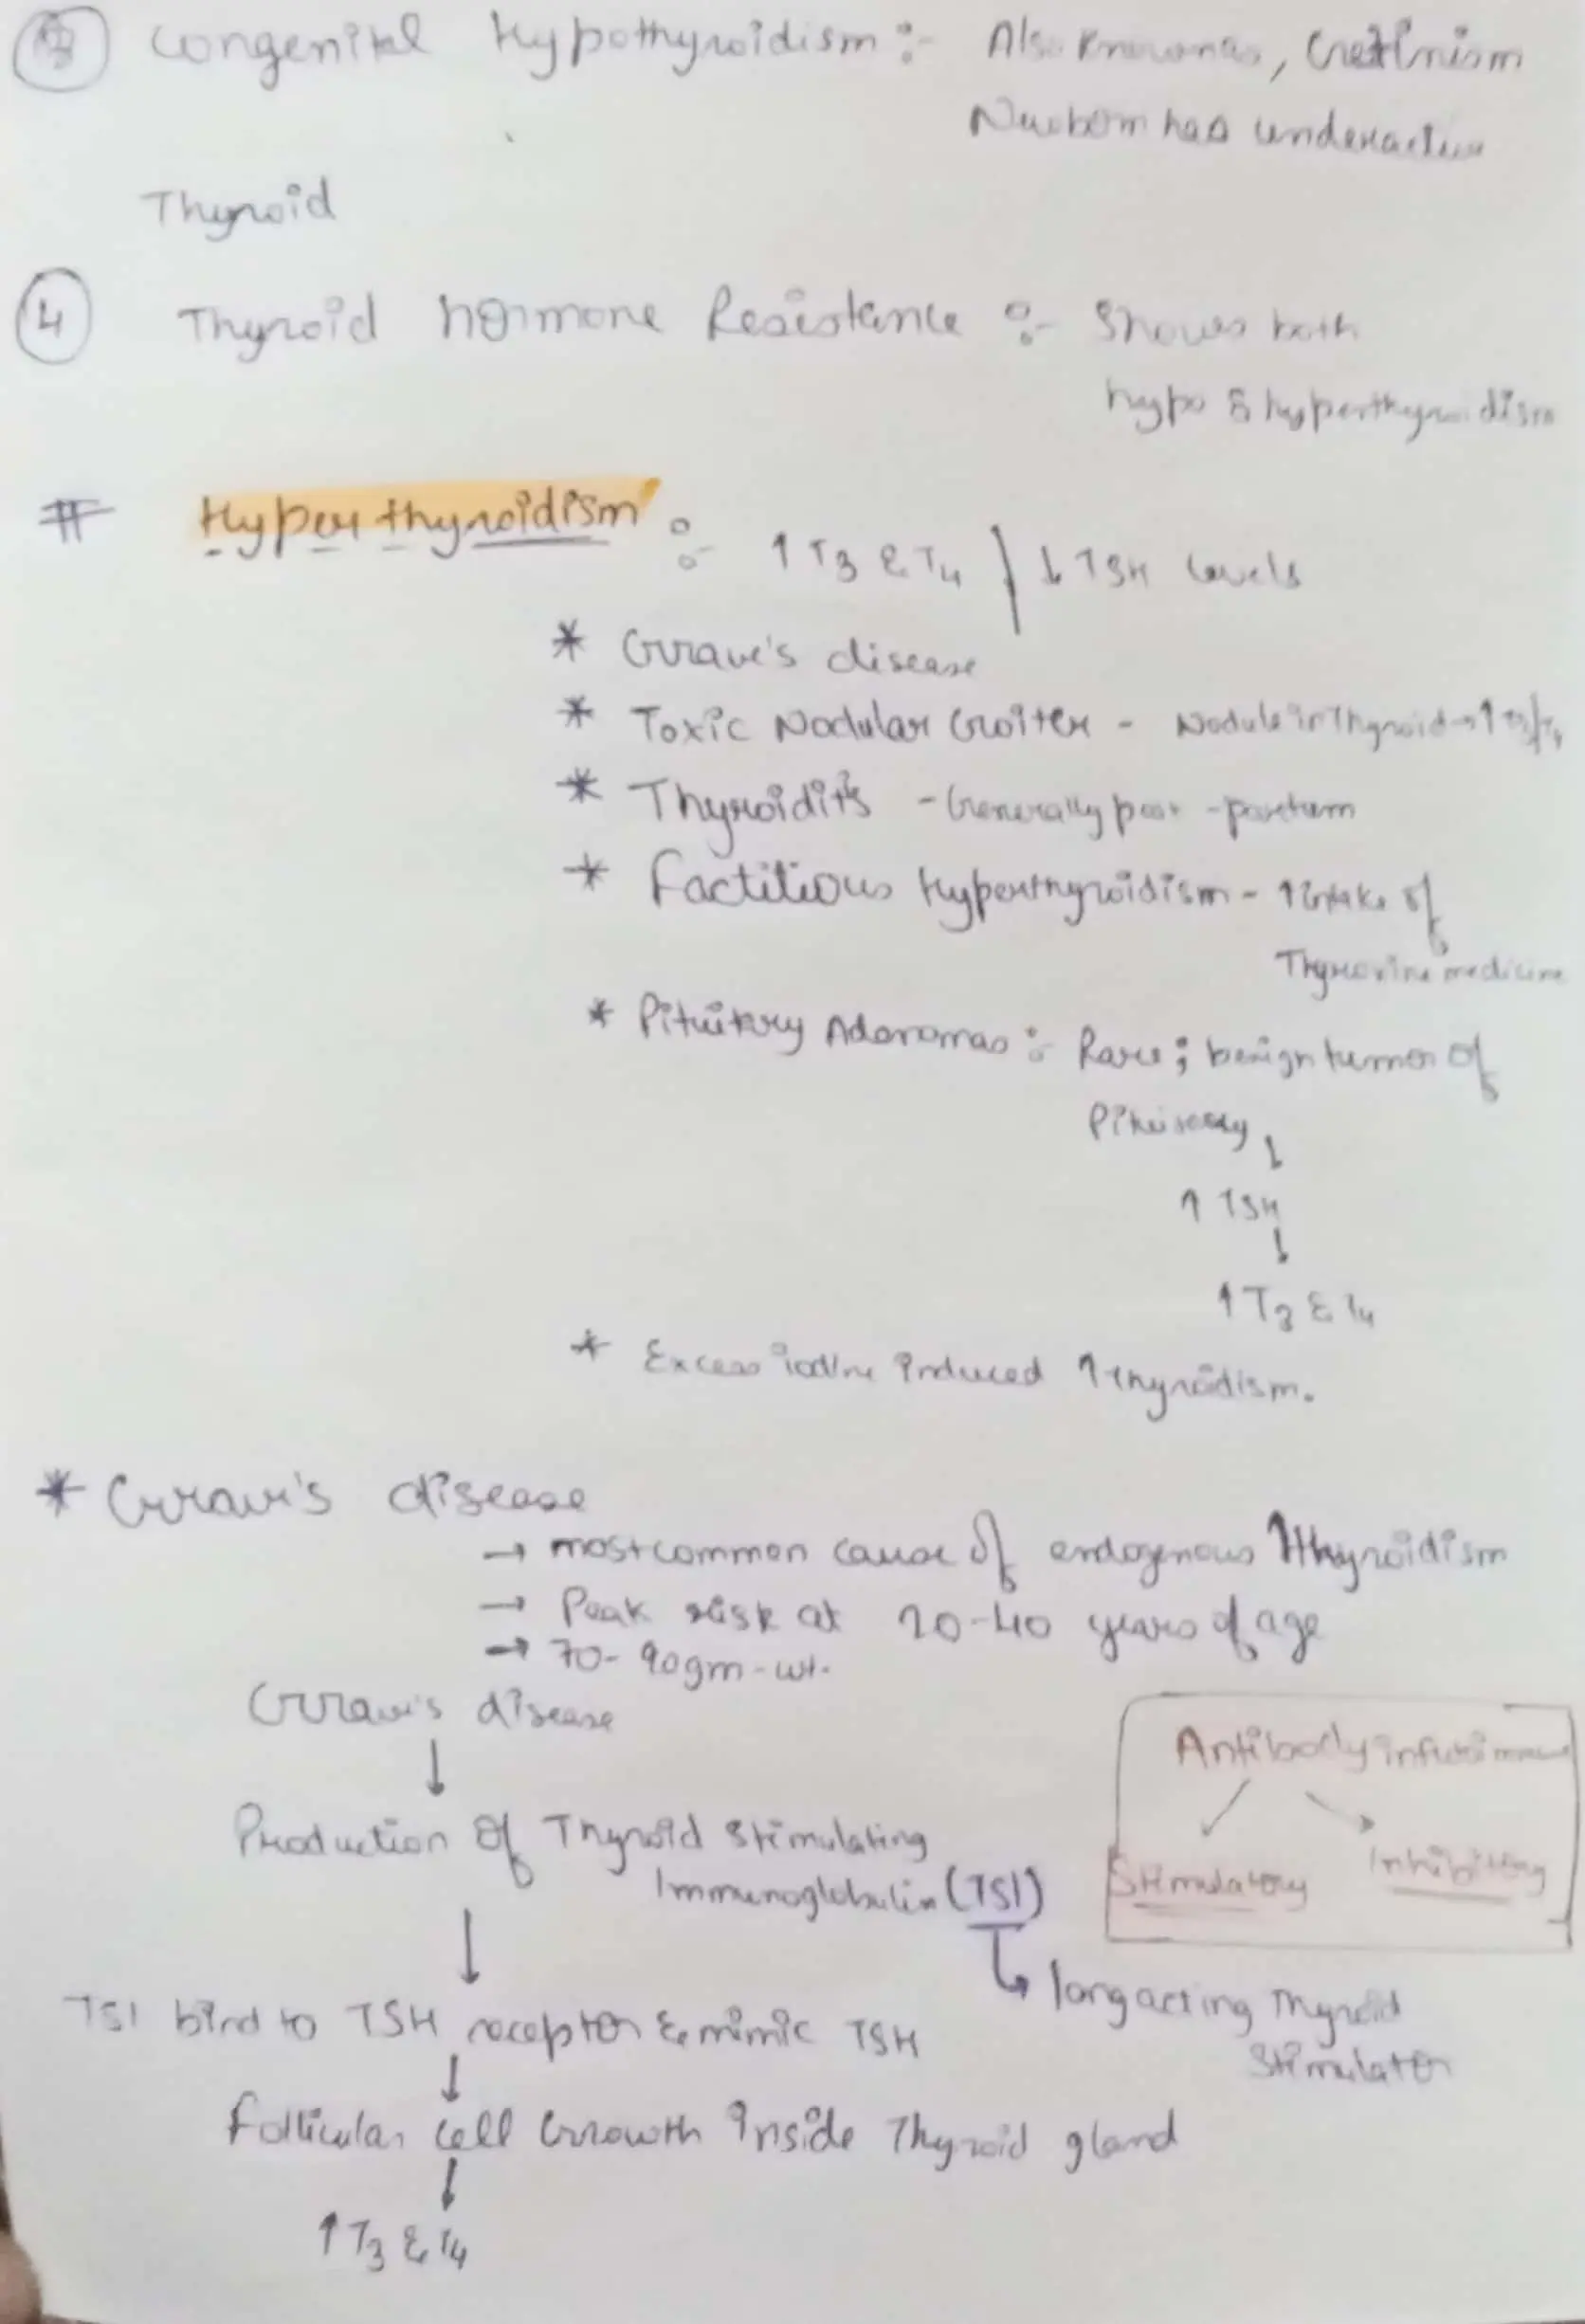 ③ Congenital Hypothyroidism :- Also Known as, Cretinism
Newborn has underactive
Thyroid
④ Thyroid hormone Resistance :- Shows both
hypo & hyperthyroidism
# Hyperthyroidism :- ↑ T3 & T4 | ↓ TSH levels
* Grave's disease
* Toxic Nodular Goiter - Nodule in Thyroid → ↑ T3/T4
* Thyroiditis - Generally post-partum
* Factitious Hyperthyroidism - ↑ intake of
Thyroxine medicine
* Pituitary Adenomas :- Rare; benign tumor of
Pituitary
↓
↑ TSH
↓
↑ T3 & T4
* Excess iodine induced ↑ thyroidism.
* Grave's disease
→ most common cause of endogenous ↑thyroidism
→ Peak risk at 20-40 years of age
→ 70-90gm-wt.
Grave's disease
↓
Production of Thyroid Stimulating
Immunoglobulin (TSI)
↳ long acting Thyroid
Stimulator
Antibody
Stimulatory Inhibitory
↓
TSI bind to TSH receptor & mimic TSH
↓
Follicular cell Growth inside Thyroid gland
↓
↑ T3 & T4